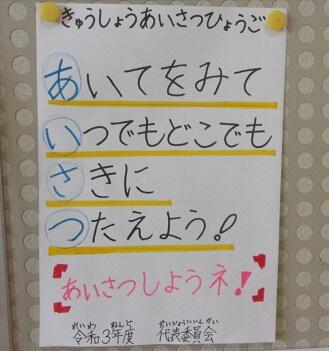 きゅうしょうあいさつひょうご
あいてをみて
いつでもどこでも
さきに
つたえよう!
あいさつしようネ!
れいわ ねんど だいひょういいんかい
令和3年度 代表委員会